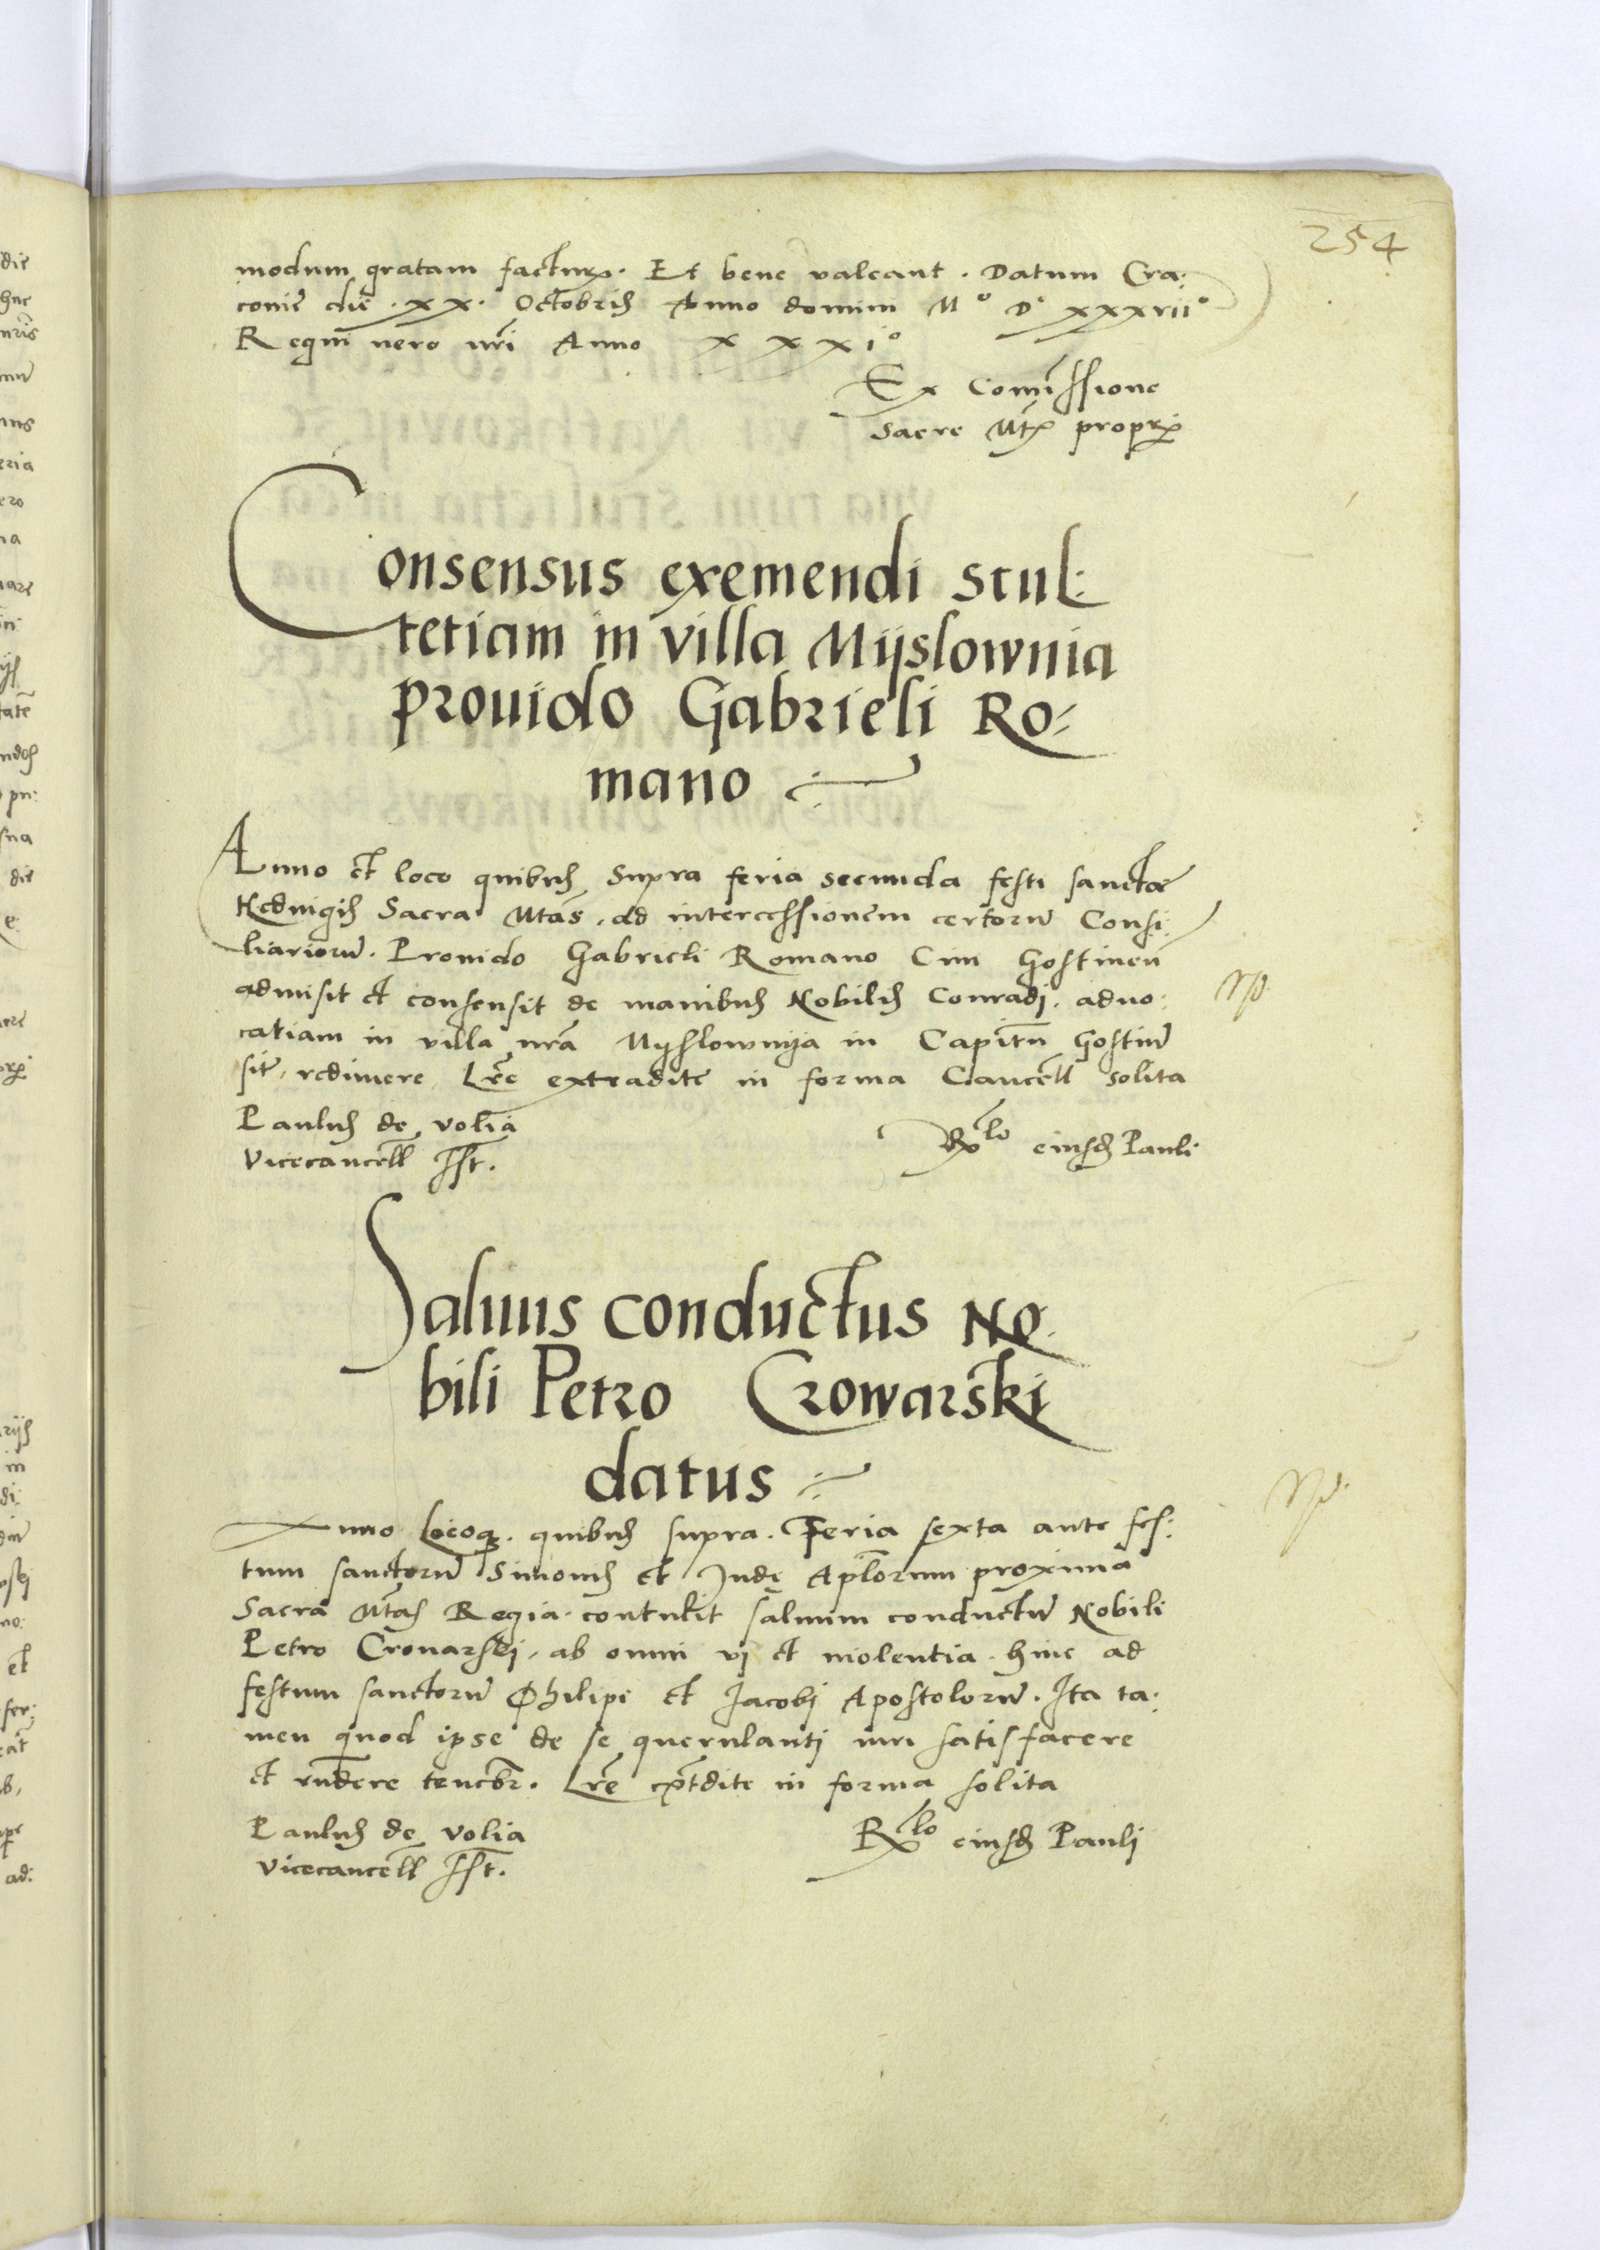 254
modum gratam factur. Et bene valeant. Datum Cra:
conie die . xx. Octobris Anno domini M° D° xxxvii°
Regni vero nri Anno xxxi°
Ex Comissione
Sacre Mtis propr
Consensus exemendi scul:
tetiam in villa Mijslownia
provido Gabrieli Ro=
mano
Anno et loco quibus supra feria secunda festi sanctae
Hedvigis Sacra Mtas. ad intercessionem certoru Consi:
liarioru. Provido Gabrieli Romano Civi Gostinen
admisit et consensit de manibus Nobilis Conradi. advo:
catiam in villa nra Myslownija in Capitn Gostin
sit. redimere. Lre extradite in forma Cancell solita
Paulus de volia
Vicecancell sst.
Rlo eiusd Pauli
Salvus conductus No:
bili Petro Crowarski
datus
Anno Locoq. quibus supra. Feria sexta ante fes:
tum sanctoru Simonis et Jude Aplorum proxima
Sacra Mtas Regia. contulit salvum conductu Nobili
Petro Crovarski. ab omni vi et violentia. hinc ad
festum sanctoru Philipi et Jacobi Apostoloru. Ita ta:
men quod ipse de se querulanti iuri satisfacere
et rndere tenebr. Lre extdite in forma solita
Paulus de volia
vicecancell sst.
Rlo eiusd Pauli